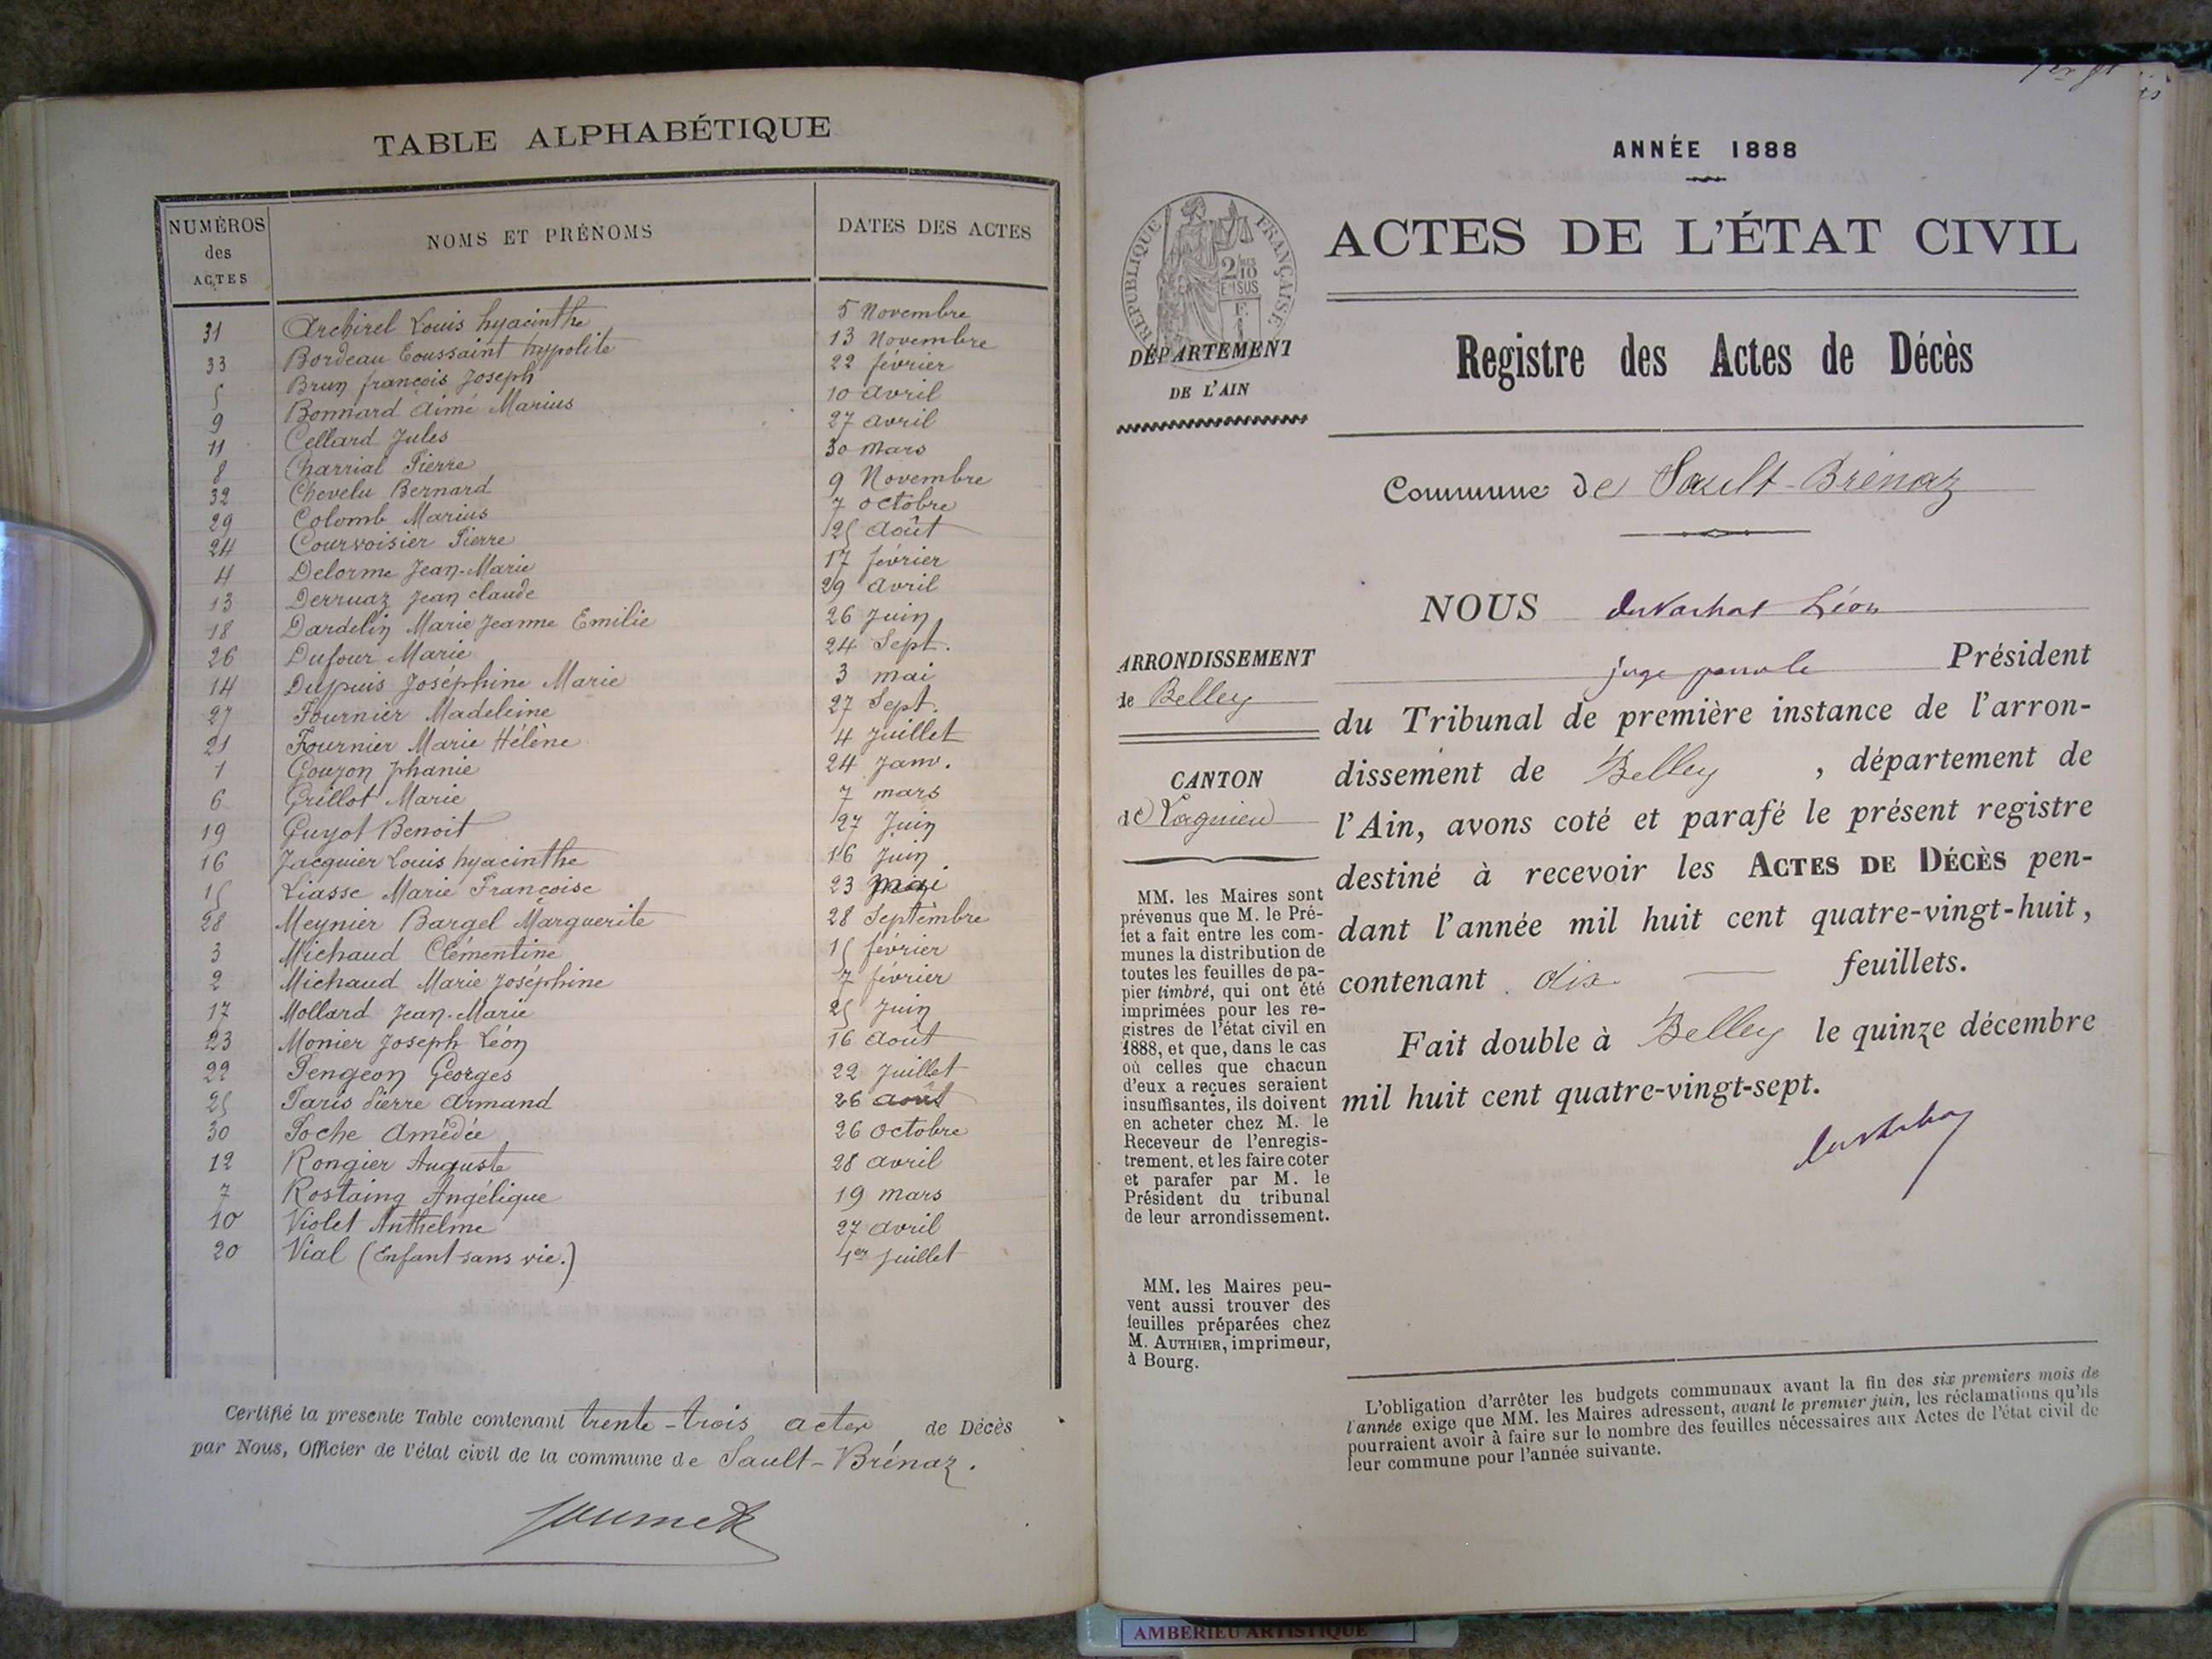 TABLE ALPHABÉTIQUE
NUMÉROS des ACTES NOMS ET PRÉNOMS DATES DES ACTES
31 Archirel Louis hyacinthe 5 Novembre
33 Bordeau Toussaint hypolite 13 Novembre
5 Brun françois Joseph 22 février
9 Bonnard Aimé Marius 10 avril
11 Cellard Jules 27 avril
8 Charrial Pierre 30 mars
32 Chevelu Bernard 9 Novembre
29 Colomb Marius 7 octobre
24 Courvoisier Pierre 25 Août
4 Delorme Jean-Marie 17 février
13 Derruaz Jean claude 29 avril
18 Dardelin Marie Jeanne Emilie 26 Juin
26 Dufour Marie 24 Sept.
14 Dupuis Joséphine Marie 3 mai
27 Fournier Madeleine 27 Sept.
21 Fournier Marie Hélène 4 Juillet
1 Goujon phanie 24 Janv.
6 Grillot Marie 7 mars
19 Guyot Benoit 27 Juin
16 Jacquier Louis hyacinthe 16 Juin
15 Liasse Marie Françoise 23 mai
28 Meynier Bargel Marguerite 28 Septembre
3 Michaud Clémentine 15 février
2 Michaud Marie Joséphine 7 février
17 Mollard Jean-Marie 25 Juin
23 Monier Joseph Léon 16 août
22 Pengeon Georges 22 Juillet
25 Paris Pierre Armand 26 août
30 Poche Amédée 26 octobre
12 Rongier Auguste 28 avril
7 Rostaing Angélique 19 mars
10 Violet Anthelme 27 avril
20 Vial (Enfant sans vie.) 1er Juillet
Certifié la présente Table contenant trente-trois actes de Décès
par Nous, Officier de l'état civil de la commune de Sault-Brénaz.
ANNÉE 1888
ACTES DE L'ÉTAT CIVIL
RÉPUBLIQUE FRANÇAISE
2/10 EN SUS
DÉPARTEMENT
DE L'AIN
Registre des Actes de Décès
Commune de Sault-Brénaz
NOUS Léon
juge Président
du Tribunal de première instance de l'arron-
dissement de Belley, département de
l'Ain, avons coté et parafé le présent registre
destiné à recevoir les ACTES DE DÉCÈS pen-
dant l'année mil huit cent quatre-vingt-huit,
contenant dix feuillets.
Fait double à Belley le quinze décembre
mil huit cent quatre-vingt-sept.
ARRONDISSEMENT
de Belley
CANTON
de Lagnieu
MM. les Maires sont
prévenus que M. le Pré-
fet a fait entre les com-
munes la distribution de
toutes les feuilles de pa-
pier timbré, qui ont été
imprimées pour les re-
gistres de l'état civil en
1888, et que, dans le cas
où celles que chacun
d'eux a reçues seraient
insuffisantes, ils doivent
en acheter chez M. le
Receveur de l'enregis-
trement, et les faire coter
et parafer par M. le
Président du tribunal
de leur arrondissement.
MM. les Maires peu-
vent aussi trouver des
feuilles préparées chez
M. AUTHIER, imprimeur,
à Bourg.
L'obligation d'arrêter les budgets communaux avant la fin des six premiers mois de
l'année exige que MM. les Maires adressent, avant le premier juin, les réclamations qu'ils
pourraient avoir à faire sur le nombre des feuilles nécessaires aux Actes de l'état civil de
leur commune pour l'année suivante.
AMBERIEU ARTISTIQUE